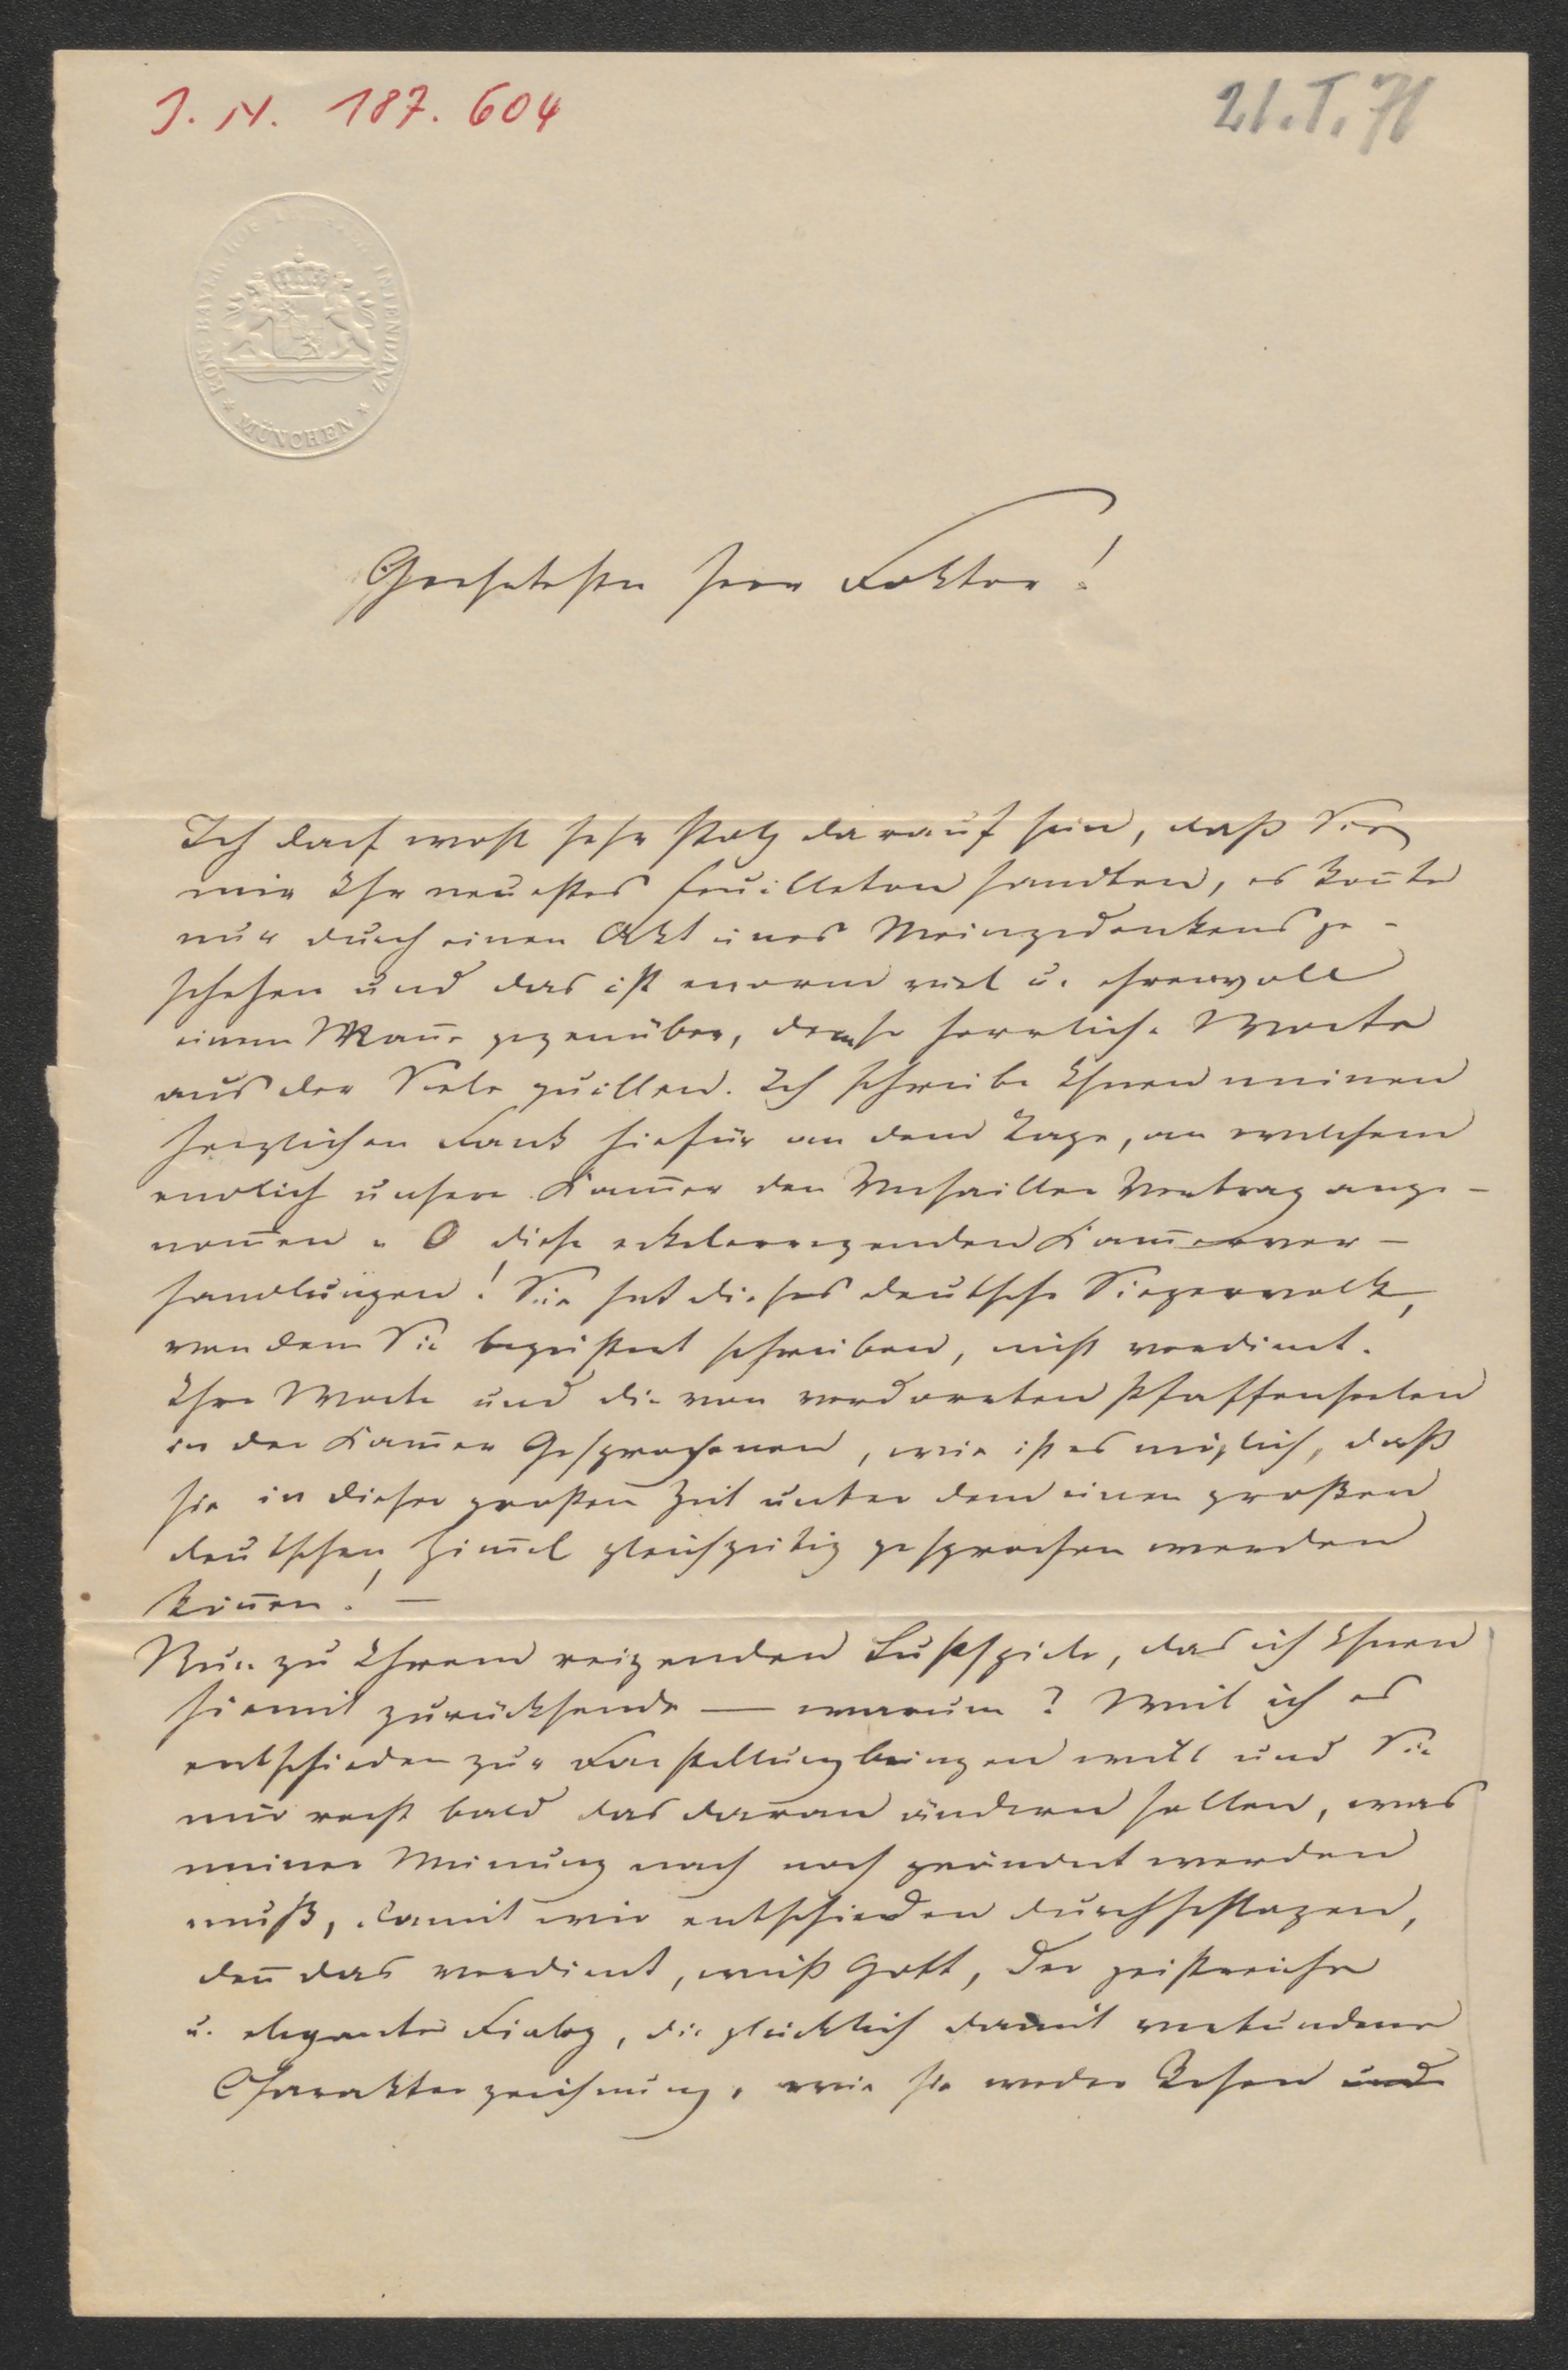 J. N. 187.604
21. I. 71
KÖN. BAYER. HOF INTENDANZ
* MÜNCHEN *
Geehrtester Herr Doktor!
Ich darf wohl sehr stolz darauf sein, daß Sie
mir Ihr neuestes Feuilleton sandten, es kon̄te
nur durch einen Akt eines Meingedenkens ge-
schehen und das ist enorm viel u. ehrenvoll
einem Man̄e gegenüber, dem so herrliche Worte
aus der Seele quillen. Ich schreibe Ihnen meinen
herzlichen Dank hiefür an dem Tage, an welchem
endlich unsere Kam̄er den Versailler Vertrag ange-
nom̄en. O diese eckelerregenden Kam̄erver-
handlungen! Sie hat dieses deutsche Siegervolk,
von dem Sie begeistert schreiben, nicht verdient.
Ihre Worte und die von verdorrten Pfaffenseelen
in der Kam̄er Gesprochenen, wie ist es möglich, daß
sie in dieser großen Zeit unter dem einen großen
deutschen Him̄el gleichzeitig gesprochen werden
kön̄en! —
Nun zu Ihrem reizenden Lustspiele, das ich Ihnen
hiemit zurücksende — warum? Weil ich es
entschieden zur Darstellung bringen will und Sie
mir recht bald das daran ändern sollen, was
meiner Meinung nach noch geändert werden
muß, damit wir entschieden durchschlagen,
den̄ das verdient, weiß Gott, der geistreiche
u. elegante Dialog, die glücklich damit verbundene
Charakterzeichnung, wie sie weder Rosen und